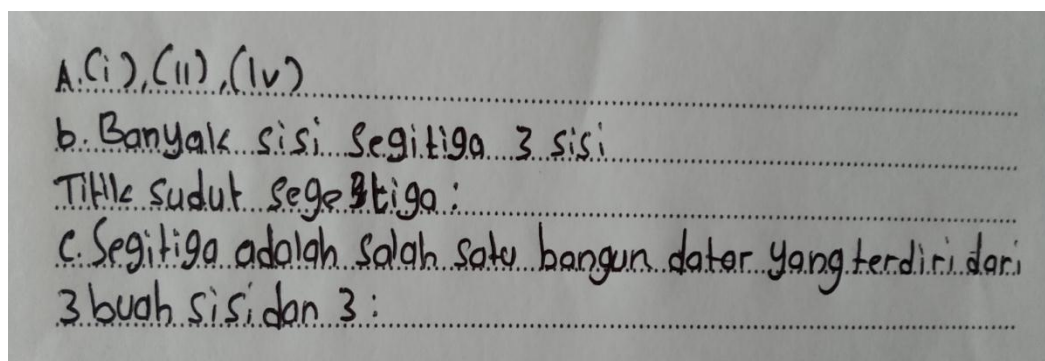 A. (i), (ii), (iv)
b. Banyak sisi segitiga 3 sisi
Titik sudut segetiga :
C. Segitiga adalah salah satu bangun datar yang terdiri dari
3 buah sisi dan 3 :